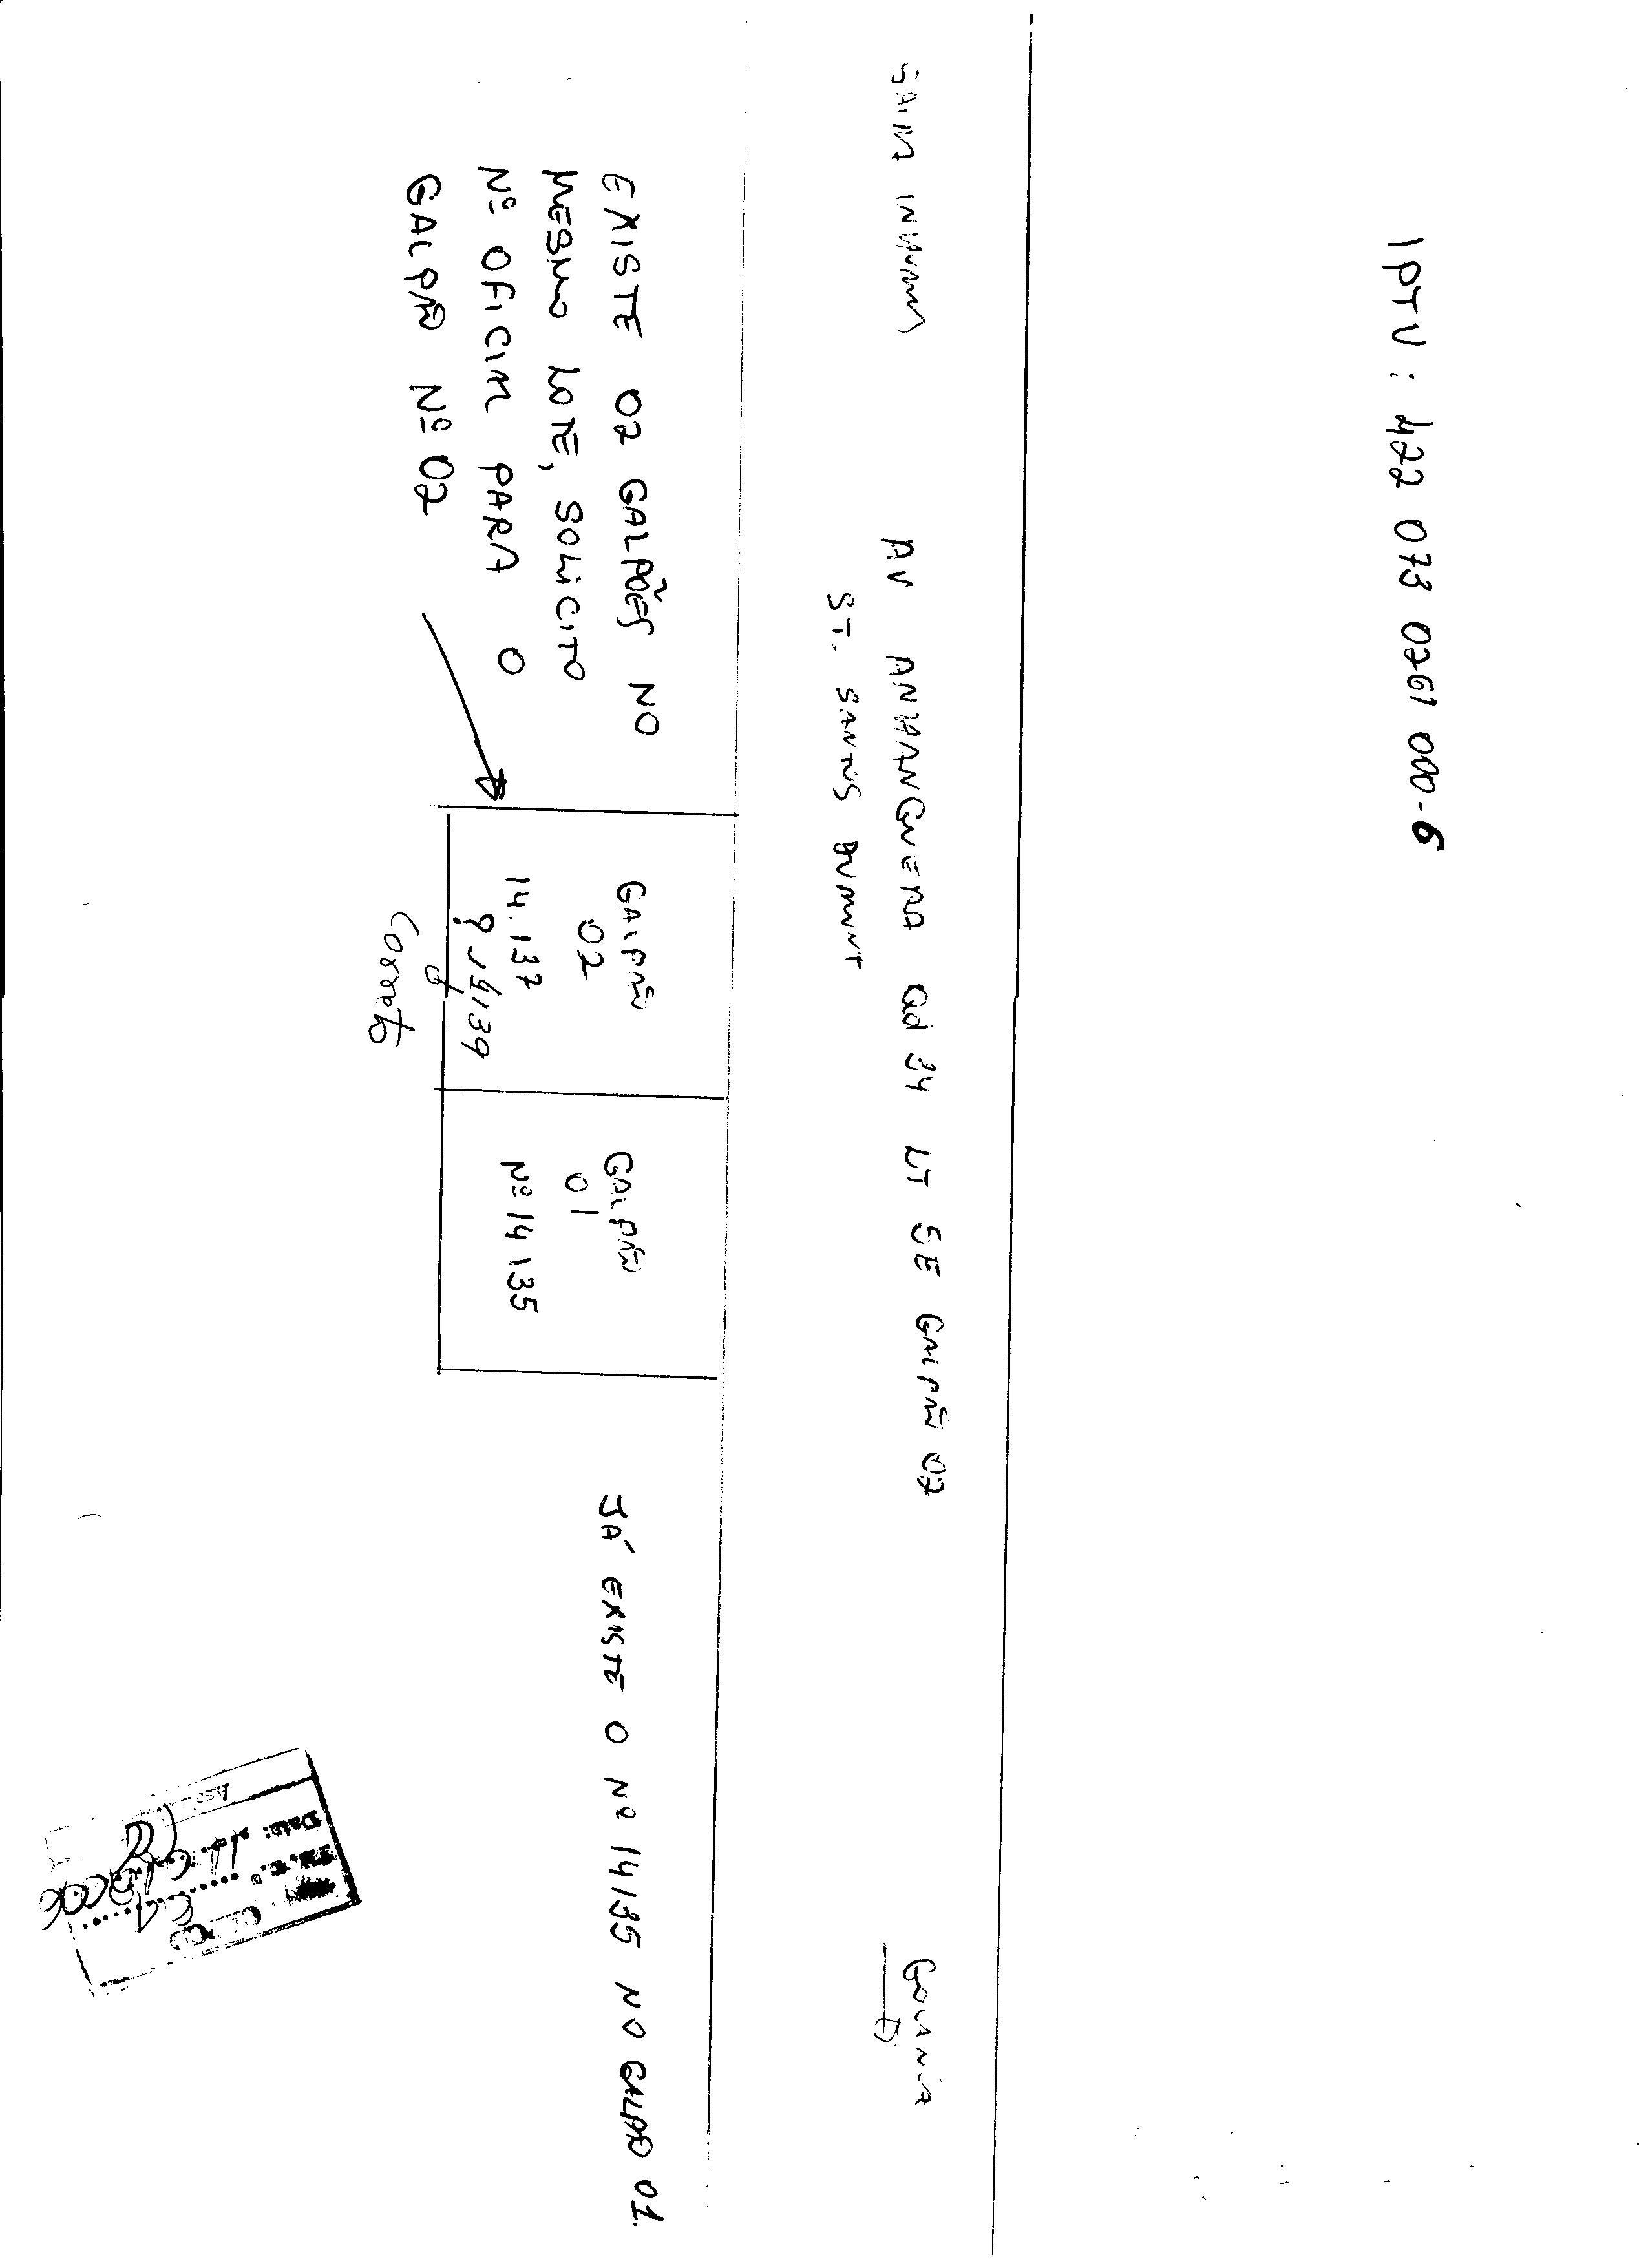 IPTU: 422 073 0261 000-6
AV ANHANGUERA Qd 34 LT 5E GALPÃO 02
ST. SANTOS DUMONT
GOIANIA
EXISTE 02 GALPÕES NO
MESMO LOTE, SOLICITO
Nº OFICIAL PARA O
GALPÃO Nº 02
GALPÃO
02
14.137
? 14139
Correto
GALPÃO
01
Nº 14135
JÁ EXISTE O Nº 14135 NO GALPÃO 01.
Data: